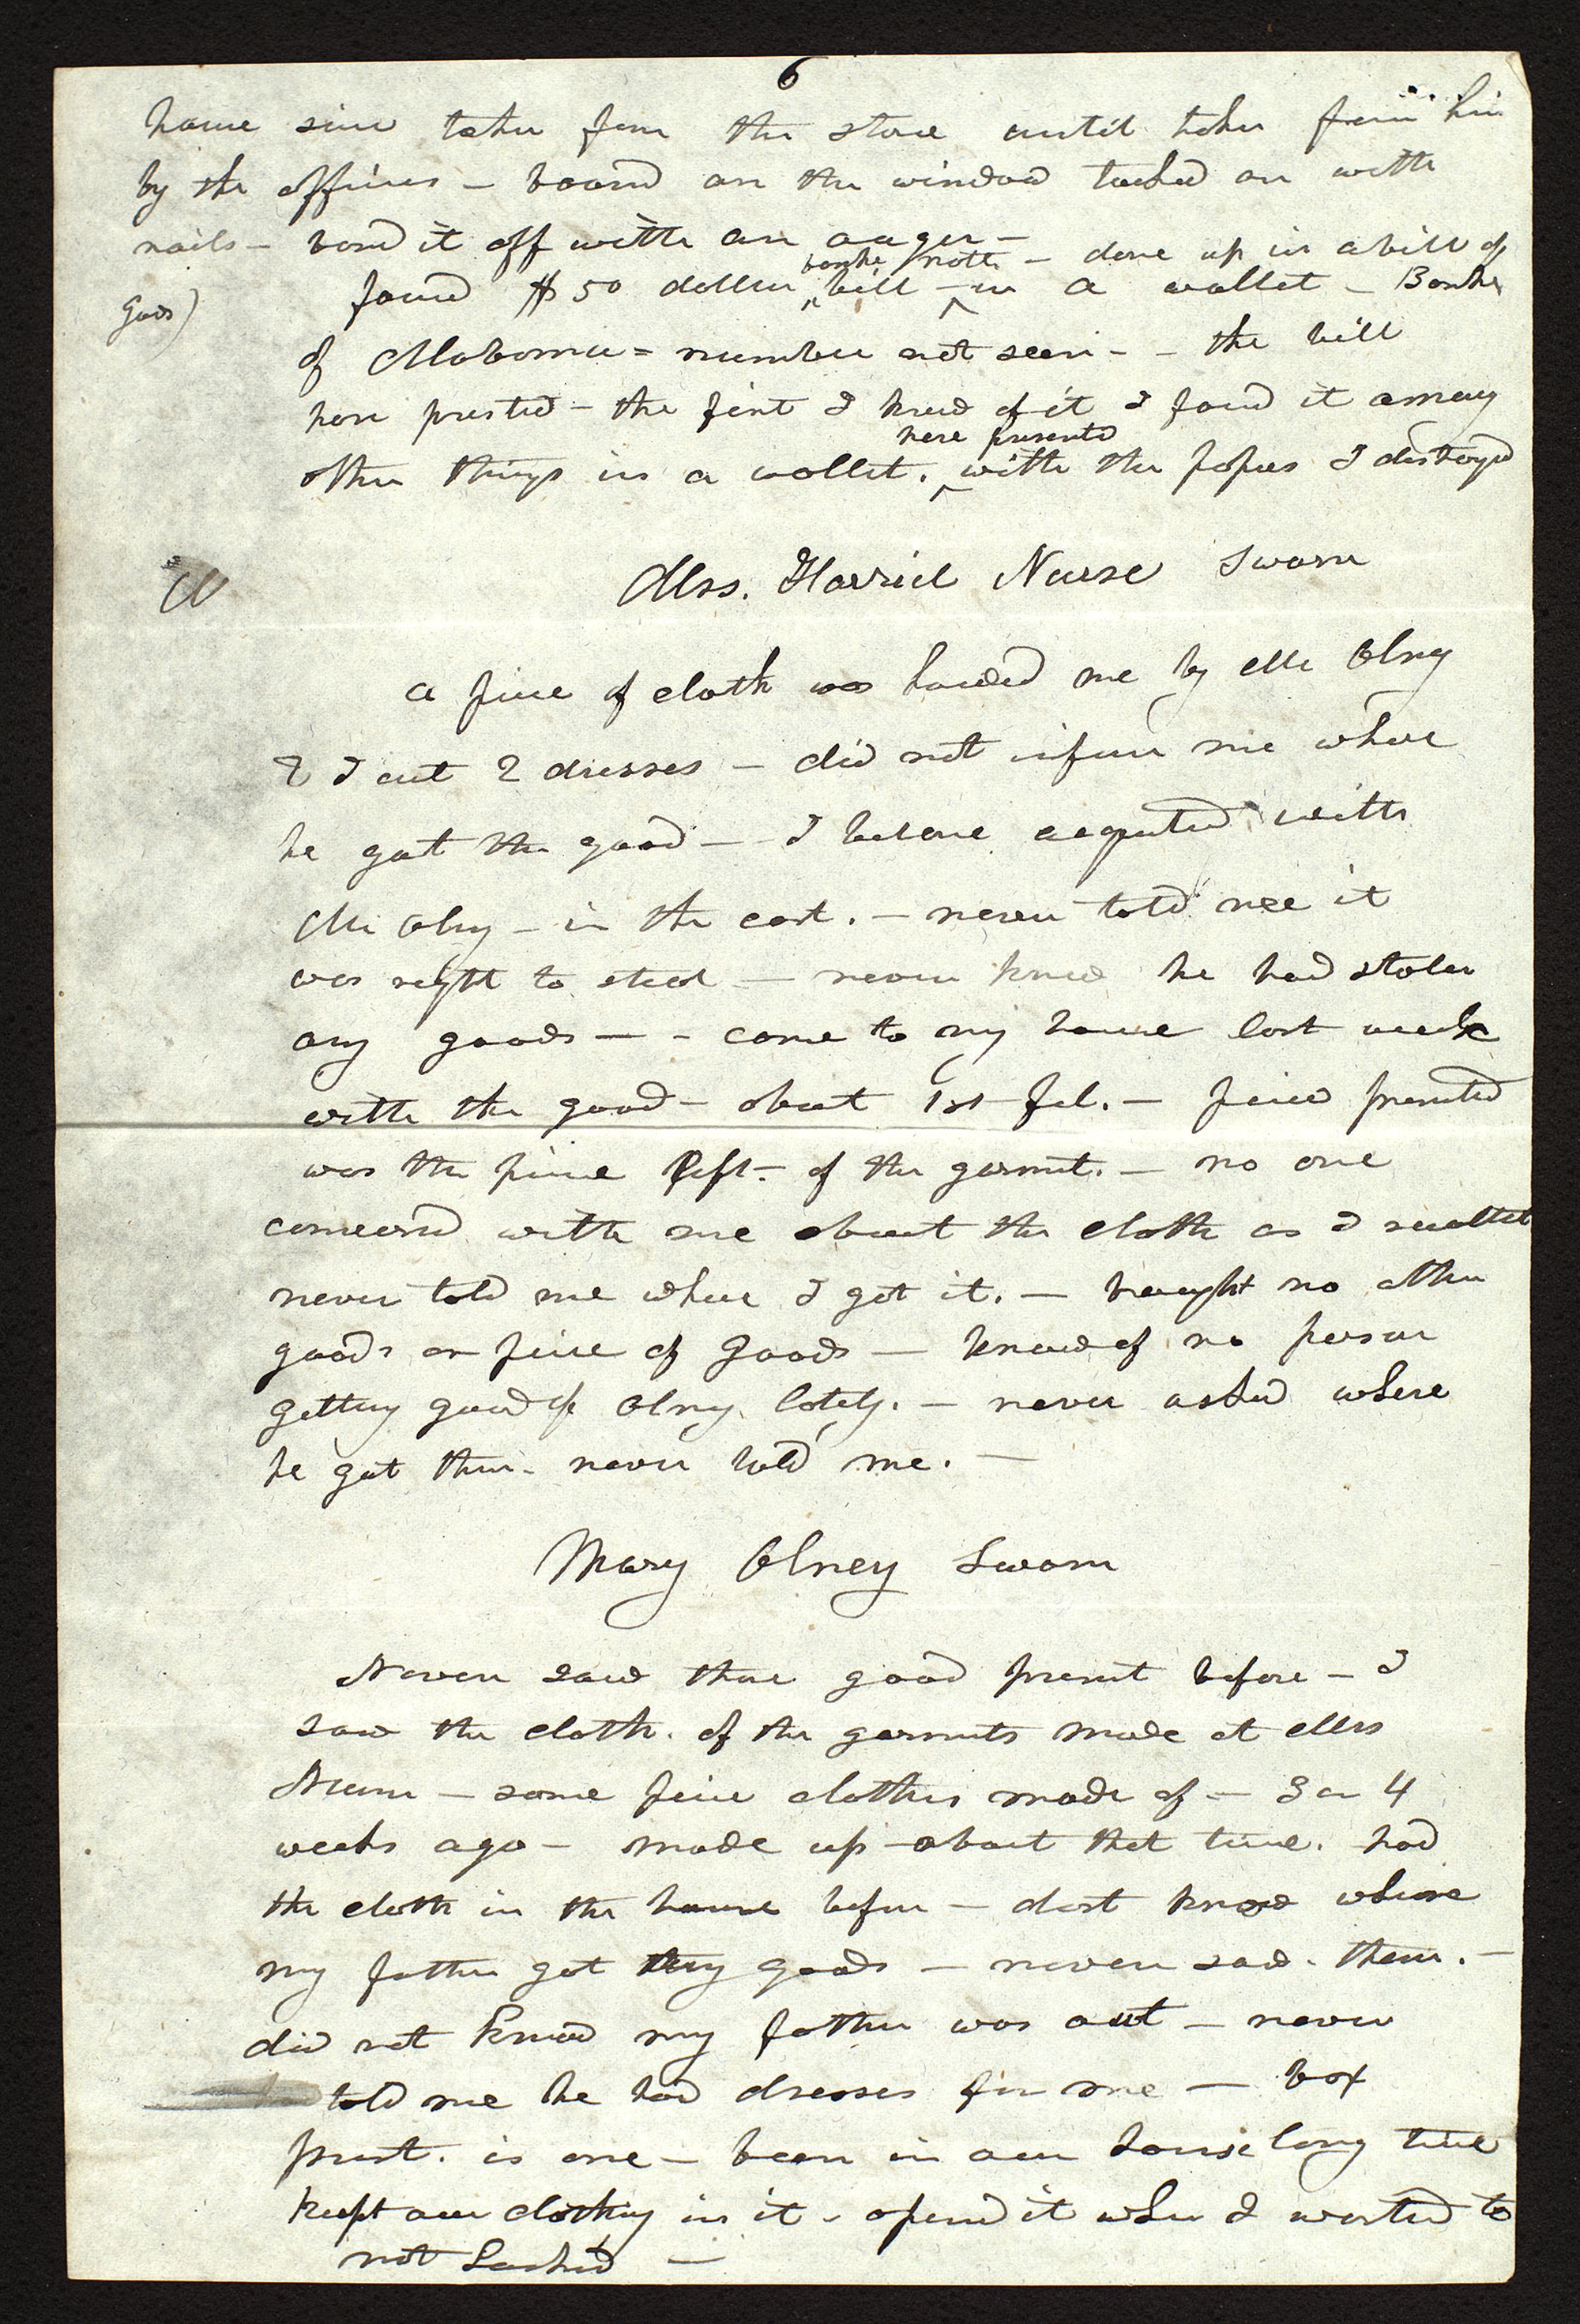 6
house since taken from the store until taken from him
by the officers – board on the window tacked on with
nails – bored it off with an auger –
bank note – done up in a bill of
goods)
found $50 dollar bill – in a wallet – Bank
of Alabama = number not seen – – the bill
here prested – the first I knew of it I found it among
here presented
other things in a wollet. with the papers I destroyed
Mrs. Harriet Nurse Sworn
a piece of cloth was handed me by Mr Olny
& I cut 2 dresses – did not inform me where
he got the good – I became acquated with
Mr Olny – in the east. – never told me it
was right to steal – never knew he had stolen
any goods – – came to my house last week
with the good – about 1st Feb. – piece presented
was the piece left – of the garmnt. – no one
conversd with me about the cloth as I
never told me where I got it. – brought no other
goods or piece of goods – knew of no person
getting good of Olny lately. – never asked where
he got them – never told me. –
Mary Olney Sworn
Never saw thse good presnt before – I
saw the cloth. of the garmnts made at Mrs
Nurse – some piece clothes made of – 3 or 4
weeks ago – made up about that time. had
the cloth in the house before – dont know where
my father got they goods – never saw. them. –
did not know my father was out – never
told me he had dresses for me – box
prest. is one – been in our house long time
kept our clothing in it – opend it when I wanted to
not Locked –